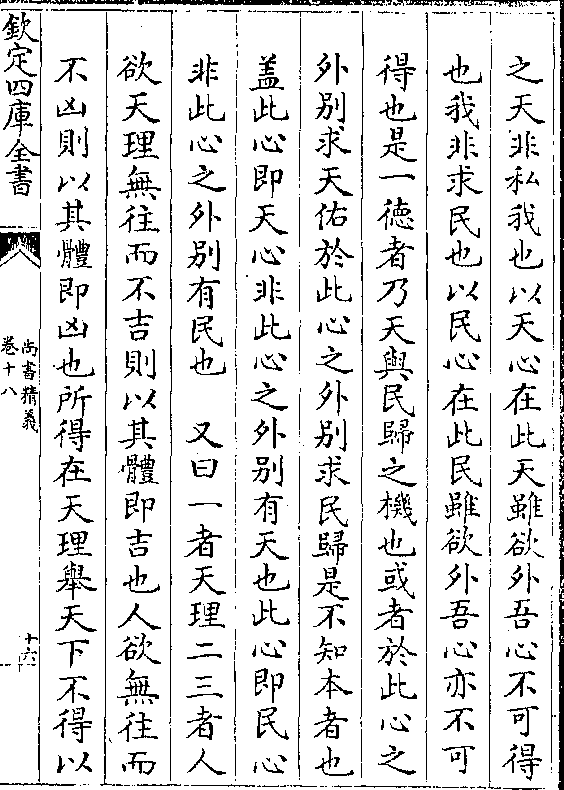 之天非私我也以天心在此天雖欲外吾心不可得
也我非求民也以民心在此民雖欲外吾心亦不可
得也是一徳者乃天與民歸之機也或者於此心之
外別求天佑於此心之外別求民歸是不知本者也
盖此心即天心非此心之外别有天也此心即民心
非此心之外别有民也　又曰一者天理二三者人
欲天理無往而不吉則以其體即吉也人欲無往而
不凶則以其體即凶也所得在天理舉天下不得以
欽定四庫全書
尚書精義
卷十八
十六